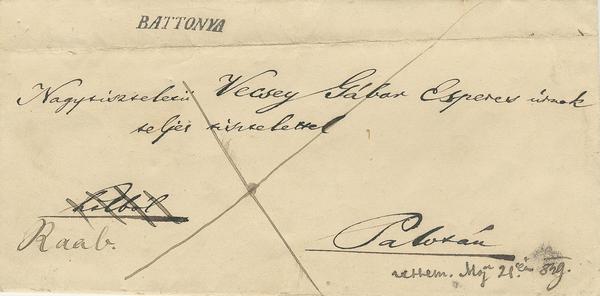 BATTONYA
Nagytiszteletü Vecsey Gábor Esperes úrnak
teljes tisztelettel
Raab.
Palotán
vettem. Maj 21 839.